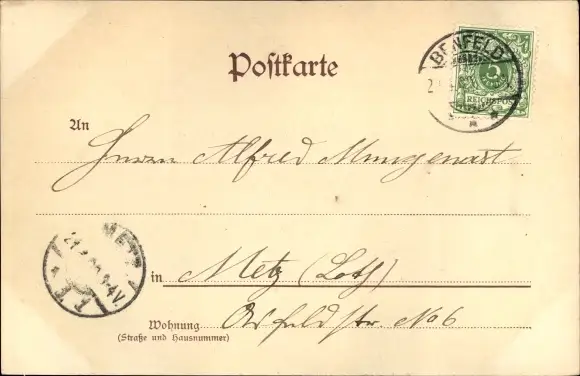 Postkarte
BENFELD
5
REICHSPOST
An
Herrn Alfred Mungenast
METZ
in Metz (Loth)
Wohnung
(Straße und Hausnummer)
str. No 6